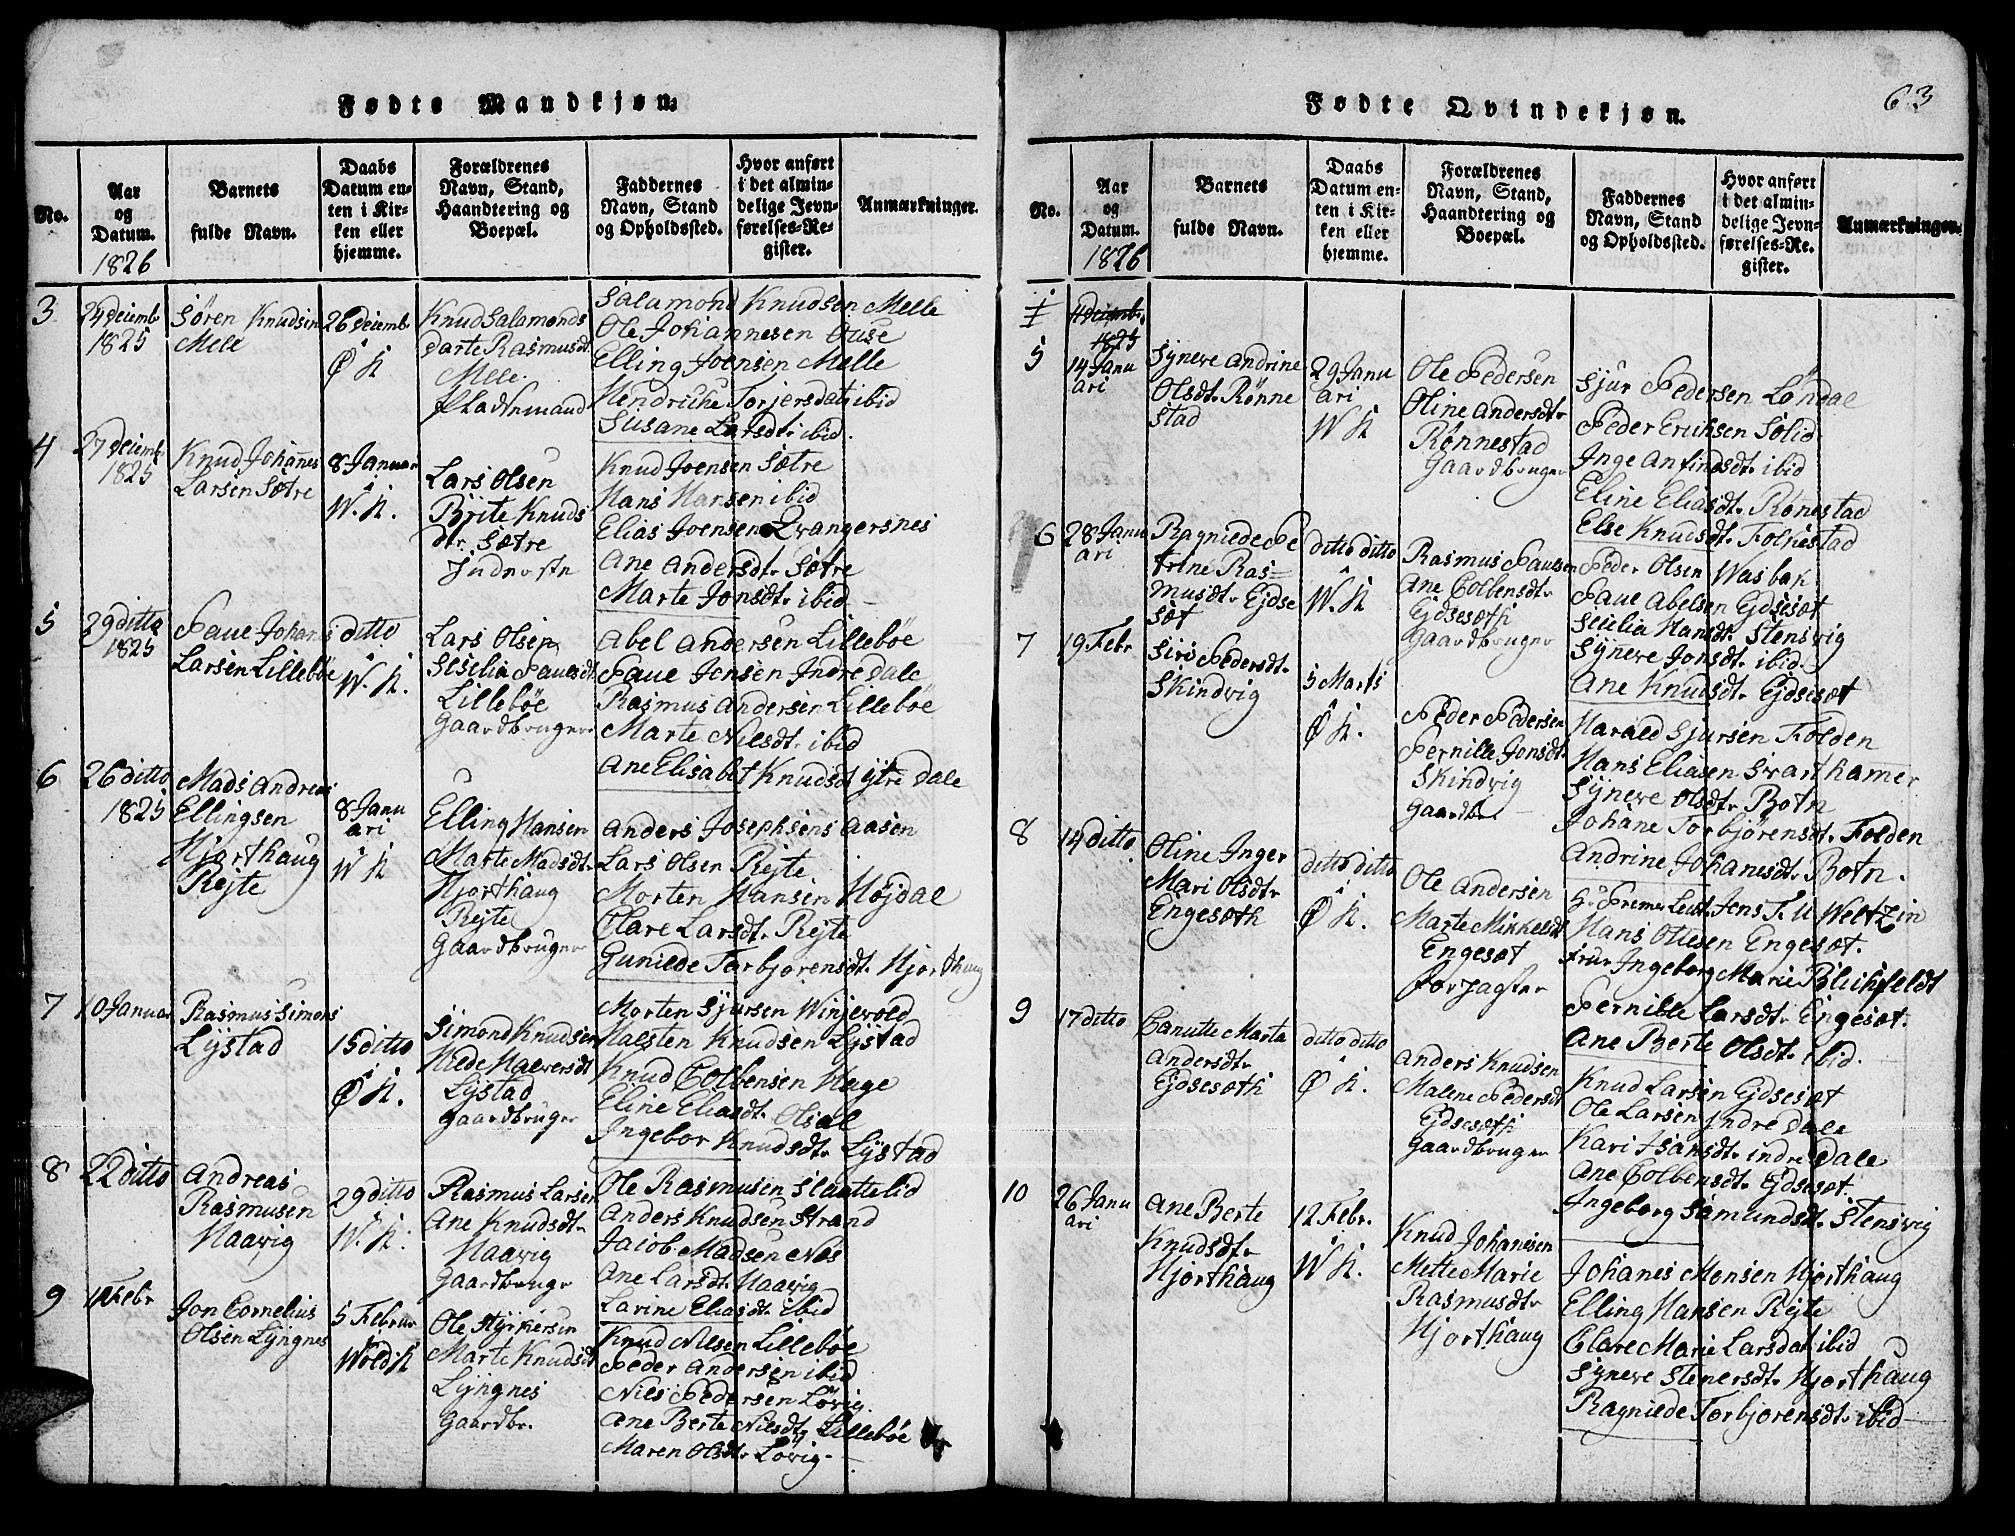 Fødte Mandkjøn.
No.
Aar
og
Datum.
1826
Barnets
fulde Navn.
Daabs
Datum en-
ten i Kir-
ken eller
hjemme.
Forældrenes
Navn, Stand,
Haandtering og
Boepæl.
Faddernes
Navn, Stand
og Opholdssted.
Hvor anført
i det almin-
delige Jevn-
førelses-Re-
gister.
Anmærkninger.
3
24 Decemb
1825
Søren Knudsen
Mell
26 Decemb
Ø K
Knud Salamonds
Darte Rasmusdt
Melle.
Pladsmand
Salamond Knudsen Melle
Ole Johannesen Ouse
Elling Joensen Melle
Hendriche Torjersdat ibid
Susane Larsdt. ibid.
4
27 Decemb
1825
Knud Johannes
Larsen Sætre
8 Januar
W. K.
Lars Olsen
Brite Knuds
dtr Sætre
Knud Joensen Sætre
Hans Hansen ibid
Elias Joensen Qvangersnes
Ane Andersdt. Sætre
Marte Jonsdt. ibid
5
29 ditto
1825
Paul Johans
Larsen Lillebøe
ditto
W. K.
Lars Olsen
Seselia Paulsdt
Lillebøe
Gaardbruger
Abel Andersen Lillebøe
Paul Jensen Indre Dale
Rasmus Andersen Lillebøe
Marte Nilsdt. ibid
Ane Elisabet Knudsdt ytre Dale
6
26 ditto
1825
Mads Andreas
Ellingsen
Hjorthaug
Rejte
8 Janu
ari
W K
Elling Hansen
Marte Madsdt.
Hjorthaug
Rejte
Gaardbruger
Anders Josephsens Aasen
Lars Olsen Rejte
Morten Hansen Højdal
Clare Larsdt. Rejte
Gunilde Torbjorensdt. Hjorthaug
7
10 Januar
Rasmus Simons
Lystad
15 ditto
Ø K.
Simond Knudsen
Hilde Halversdt
Lystad
Gaardbruger
Morten Sjursen Winjevold
Halsten Knudsen Lystad
Knud Colbensen Hage
Eline Eliasdt. Olsal
Ingebor Knudsdt. Lystad
8
22 ditto
Andreas
Rasmusen
Haavig
29 ditto
W. K.
Rasmus Larsen
Ane Knudsdt.
Haavig
Gaardbruge
Ole Rasmusen Slaattelid
Anders Knudsen Strand
Jacob Madsen Nøs
Ane Larsdt. Haavig
Larine Eliasdt. ibid
9
1 Febr
Jon Cornelius
Olsen Lyngnes
5 Februar
Wold K
Ole Styrkersen
Marte Knudsdt
Lyngnes
Gaardbr.
Knud Nilsen Lillebøe
Peder Andersen ibid
Nils Pedersen Løvig
Ane Berte Nilsdt. Lillebøe
Maren Olsdt. Løvig
Fødte Qvindekjøn.
63
No.
Aar
og
Datum.
1826
Barnets
fulde Navn.
Daabs
Datum en-
ten i Kir-
ken eller
hjemme.
Forældrenes
Navn, Stand,
Haandtering og
Boepæl.
Faddernes
Navn, Stand
og Opholdssted.
Hvor anført
i det almin-
delige Jevn-
førelses-Re-
gister.
Anmærkninger.
1825
5
14 Janu
ari
Syneve Andrine
Olsdt. Rønne
stad
29 Janu
ari
W K
Ole Pedersen
Oline Andersdt.
Rønnestad
Gaardbruger
Sjur Pedersen Løndal
Peder Erichsen Solid
Inge Anfindsdt. ibid
Eline Eliasdt. Rønestad
Else Knudsdt. Folkestad
6
28 Janu
ari
Ragnilde Pe
trine Ras=
musdt. Ejdse
sæt
ditto ditto
W. K
Rasmus Paulsen
Ane Colbensdt.
Ejdsesæth
Gaardbruger
Peder Olsen Wasbak
Paul Abelsen Ejdsesæt
Secilia Hansdt. Stensvig
Syneve Jonsdt. ibid
Ane Knudsdt. Ejdsesæt
7
19 Febr
Siri Pedersdt.
Skindvig
5 Marts
Ø K.
Peder Pedersen
Pernille Jonsdt.
Skindvig
Gaardbr
Harald Sjursen Folden
Hans Eliasen Svarthamer
Syneve Olsdt. Botn
Johane Torbjørensdt. Folden
Andrine Johanesdt. Botn.
8
14 ditto
Oline Inger
Mari Olsdt.
Engesæth
ditto ditto
Ø K.
Ole Andersen
Marte Mikkelsdt
Engesæt
Forpagter
Hr. Premer Leut. Jens F. U Weltzin
Hans Ollesen Engesæt.
Frue Ingeborg Marie Blichfeldt
Pernille Larsdt. Engesæt.
Ane Berte Olsdt. ibid.
9
17 ditto
Canutte Marta
Andersdt.
Ejdsesæth
ditto ditto
Ø K.
Anders Knudsen
Malene Pedersdt
Ejdsesæth
Gaardbruger
Knud Larsen Ejdsesæt
Ole Larsen Indre Dale
Kari Isansdt. indre Dale
Ane Colbensdt. Ejdsesæt.
Ingeborg Samundsdt. Stensvig
10
26 Janu
ari
Ane Berte
Knudsdt.
Hjorthaug
12 Febr.
W K.
Knud Johanesen
Mette Marie
Rasmusdt.
Hjorthaug
Johanes Monsen Hjorthaug
Elling Hansen Rejte
Clare Marie Larsdat ibid
Syneve Stenersdt. Hjorthaug
Ragnilde Torbjorensdt. ibid